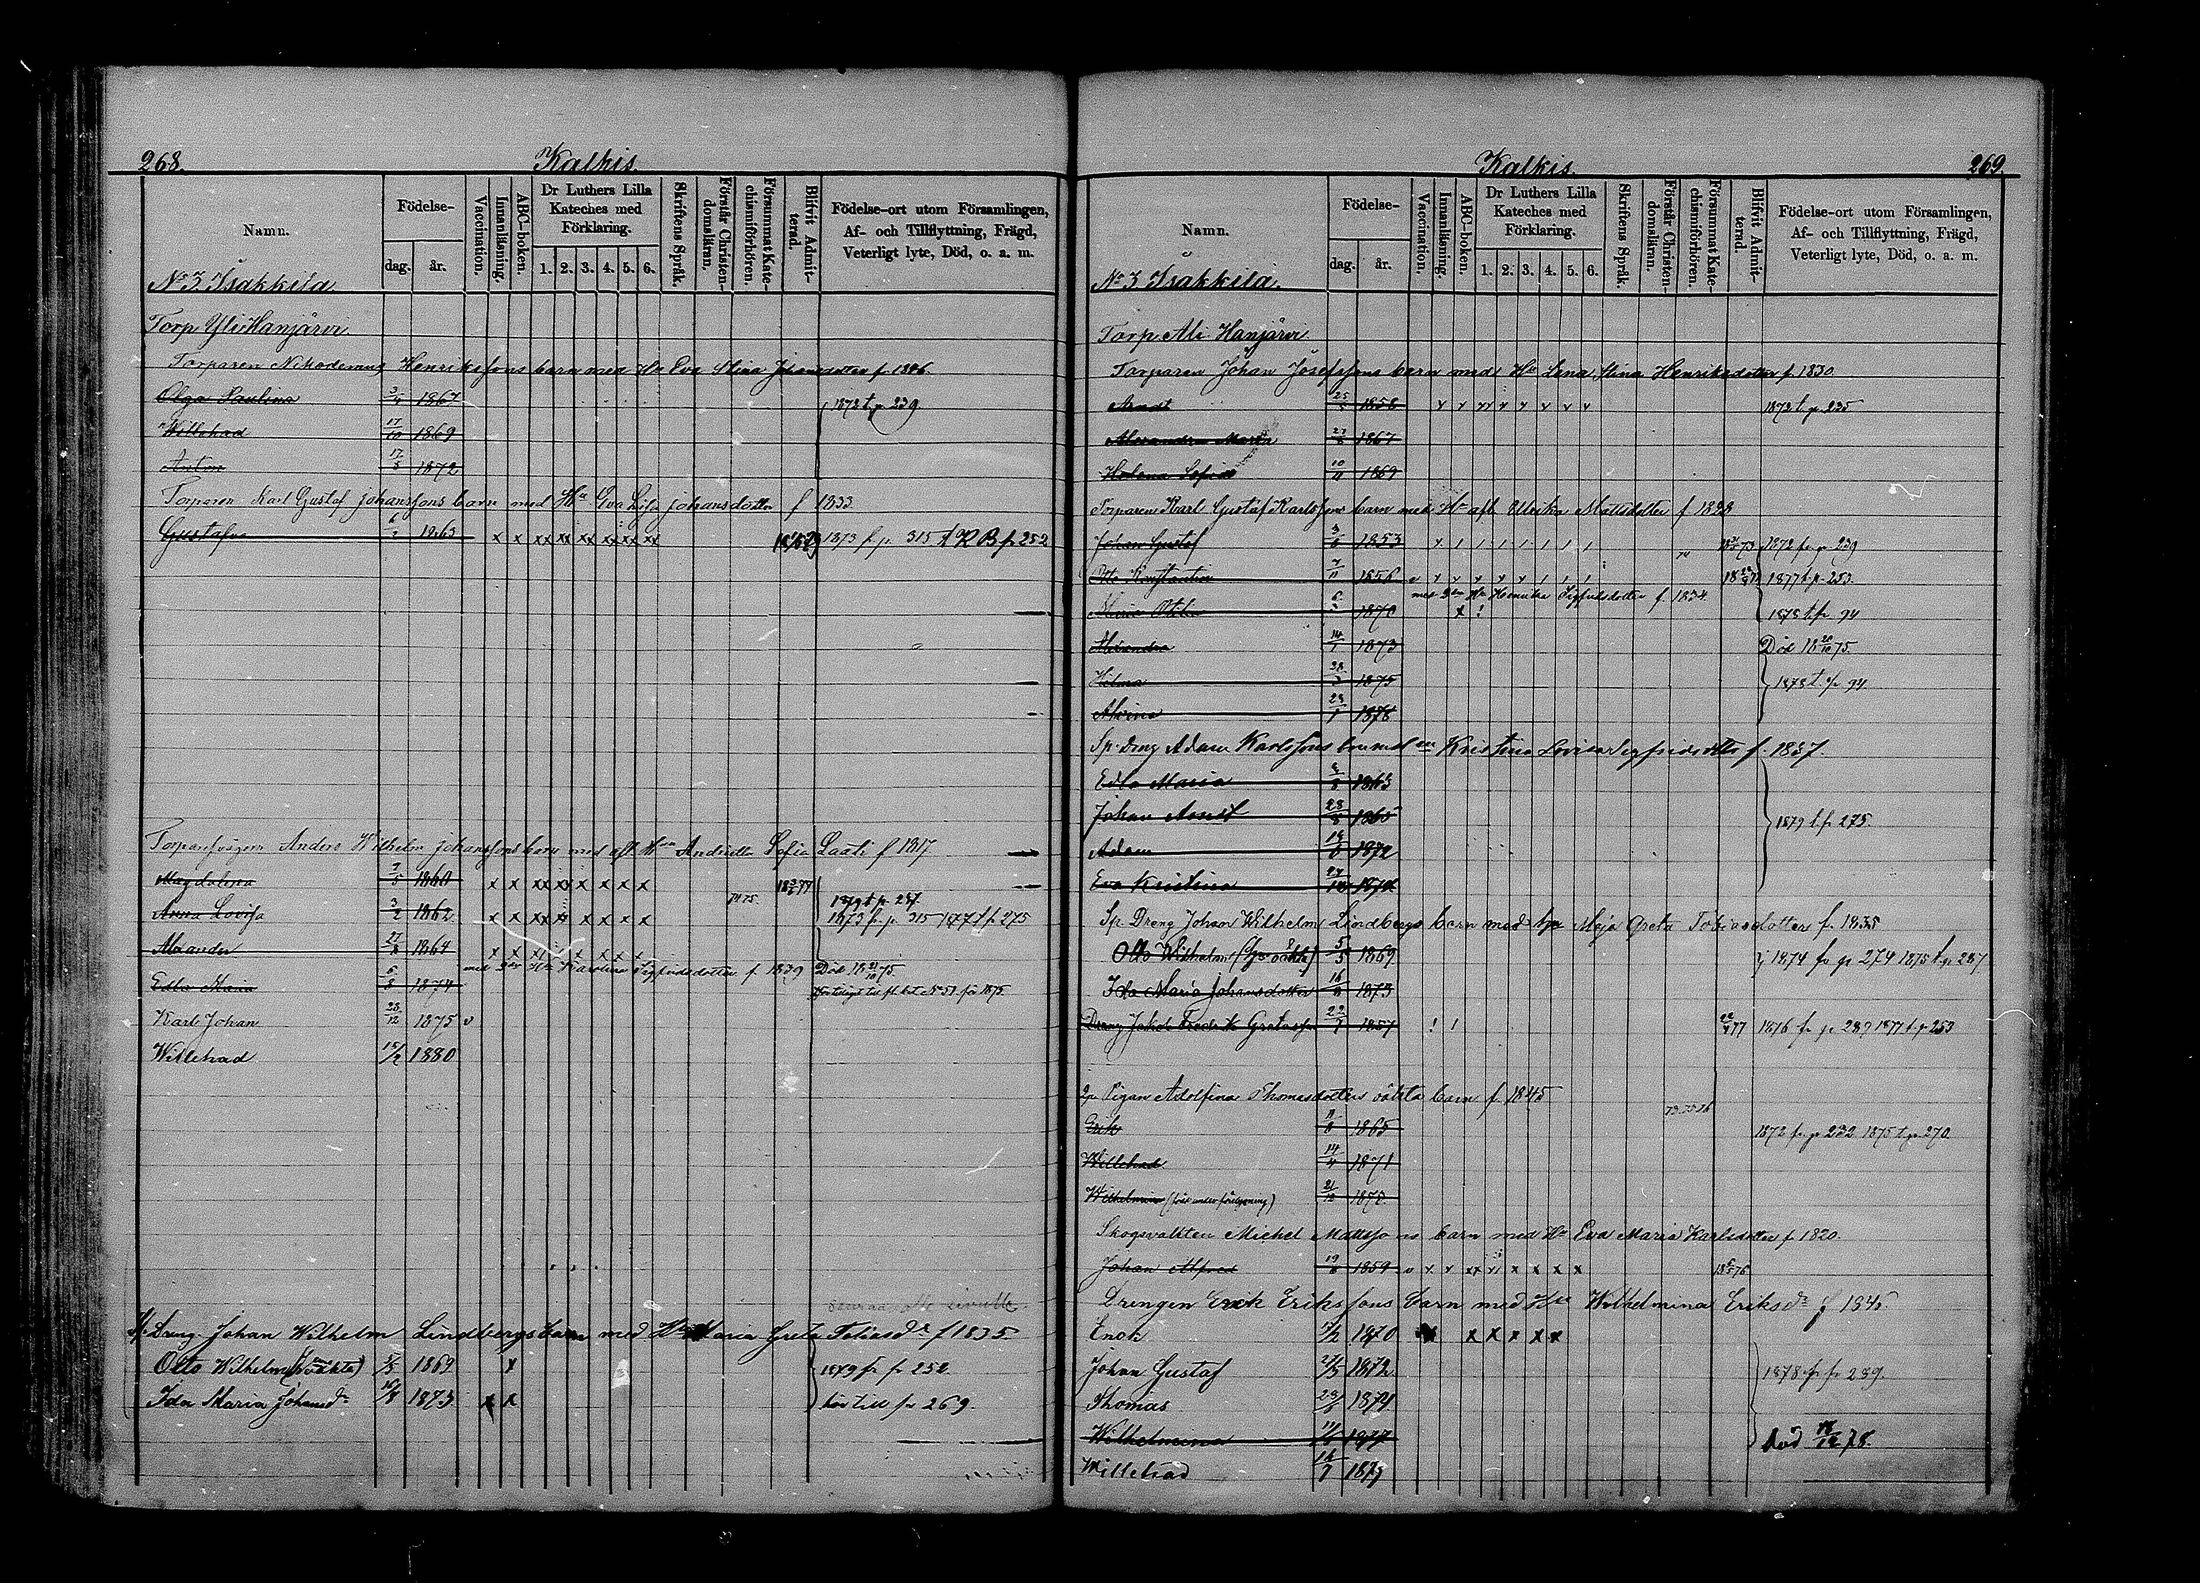 268.
Kalkis.
Namn.
Födelse-
dag.
år.
Vaccination.
Innanläsning.
ABC-boken.
Dr Luthers Lilla
Kateches med
Förklaring.
1. 2. 3. 4. 5. 6.
Skriftens Språk.
Förstår Christendomsläran.
Försummat Katechismiförhören.
Blifvit Admitterad.
Födelse-ort utom Församlingen,
Af- och Tillflyttning, Frägd,
Veterligt lyte, Död, o. a. m.
No 3 Isakkila
Torp Yli Hanjärvi
Torparen Nikodemus Henrikssons barn med Hu Eva Stina Johansdotter f. 1846
Olga Paulina 1867 1872 t. p. 239
Willehad 17/10 1869
Anton 17/5 1872
Torparen Karl Gustaf Johanssons barn med Hu Eva Lisa Johansdotter f 1833
Gustafva 1863 x x xx xx xx xx xx xx 1873 f. p. 315 KB p. 252
Anders Wilhelm Johanssons barn med aft Hu Andrietta Sofia Laati f 1817
Magdalena 7/5 1860 x x xx xx x x x x 74 75. 1879 t. p. 287.
Anna Lovisa 3/2 1862 x x xx xx x x x x 1873 f. p. 315 1877 t. p. 275
Alexander 27/8 1864 x x x x x x x
med Hu Karolina Sigfridsdotter f. 1839
Edla Maria 6/5 1874 Död 75.
Karl Johan 28/12 1875 v
Willehad 15/2 1880
Sp. Dreng Johan Wilhelm Lindbergs barn med Hu Maria Greta Tobiasdr f 1835
Otto Wilhelm (oäkta) 5/5 1869 x 1879 fr. p. 252
Ida Maria Johansdr 16/8 1873 x x hör till p. 269.
Kalkis.
269.
Namn.
Födelse-
dag.
år.
Vaccination.
Innanläsning.
ABC-boken.
Dr Luthers Lilla
Kateches med
Förklaring.
1. 2. 3. 4. 5. 6.
Skriftens Språk.
Förstår Christendomsläran.
Försummat Katechismiförhören.
Blifvit Admitterad.
Födelse-ort utom Församlingen,
Af- och Tillflyttning, Frägd,
Veterligt lyte, Död, o. a. m.
No 3 Isakkila.
Torp Ali Hanjärvi
Torparen Johan Josefssons barn med Hu Lena Stina Henriksdotter f. 1830
1858 1872 t. p. 235
Alexandra Maria 1867
Helena Sofia 10/11 1869
Torparen Karl Gustaf Karlssons barn med Hu aft Ulrika Mattsdotter f 1828
Johan Gustaf 1853 74 1872 fr. p. 239
Otto Konstantin 7/11 1856 1877 t. p. 253.
med Hu Henrika Sigfridsdotter f. 1834
Maria Otilia 1870 x ! 1878 t. p. 94
Alexandra 14/1 1873 Död 75.
Hilma 1875 1878 t. p. 94
Alvina 23/1 1878
Sp. Dreng Adam Karlssons barn med Kristina Lovisa Sigfridsdotter f. 1837.
Edla Maria 1863
Johan Arndt 28/8 1865 1879 t. p. 275.
Adam 1872
Eva Kristina
Sp. Dreng Johan Wilhelm Lindbergs barn med hu Maja Greta Tobiasdotter f. 1835
Otto Wilhelm (oäkta) 5/5 1869 1874 fr. p. 274 1875 t. p. 287
Ida Maria Johansdotter 16/8 1873
Dreng Jakob Fredrik 22/7 1857 ! ! 1876 fr. p. 289 1877 t. p. 253
Pigan Adolfina Thomasdotters oäkta barn f 1845
73 75 76
Erik 11/8 1865 1872 fr. p. 232 1875 t. p. 270
Willehad 14/4 1871
Wilhelmina 21/12
Skogsvakten Michel Mattssons barn med Hu Eva Maria Karlsdotter f. 1820.
Johan Alfred 1859
Drengen Erik Erikssons barn med Hu Wilhelmina Eriksdr f 1845
Enok 1870 x x x x x
Johan Gustaf 1872 1878 fr. p. 289.
Thomas 1874
Wilhelmina 1877 död 78.
Willehad 16/7 1879